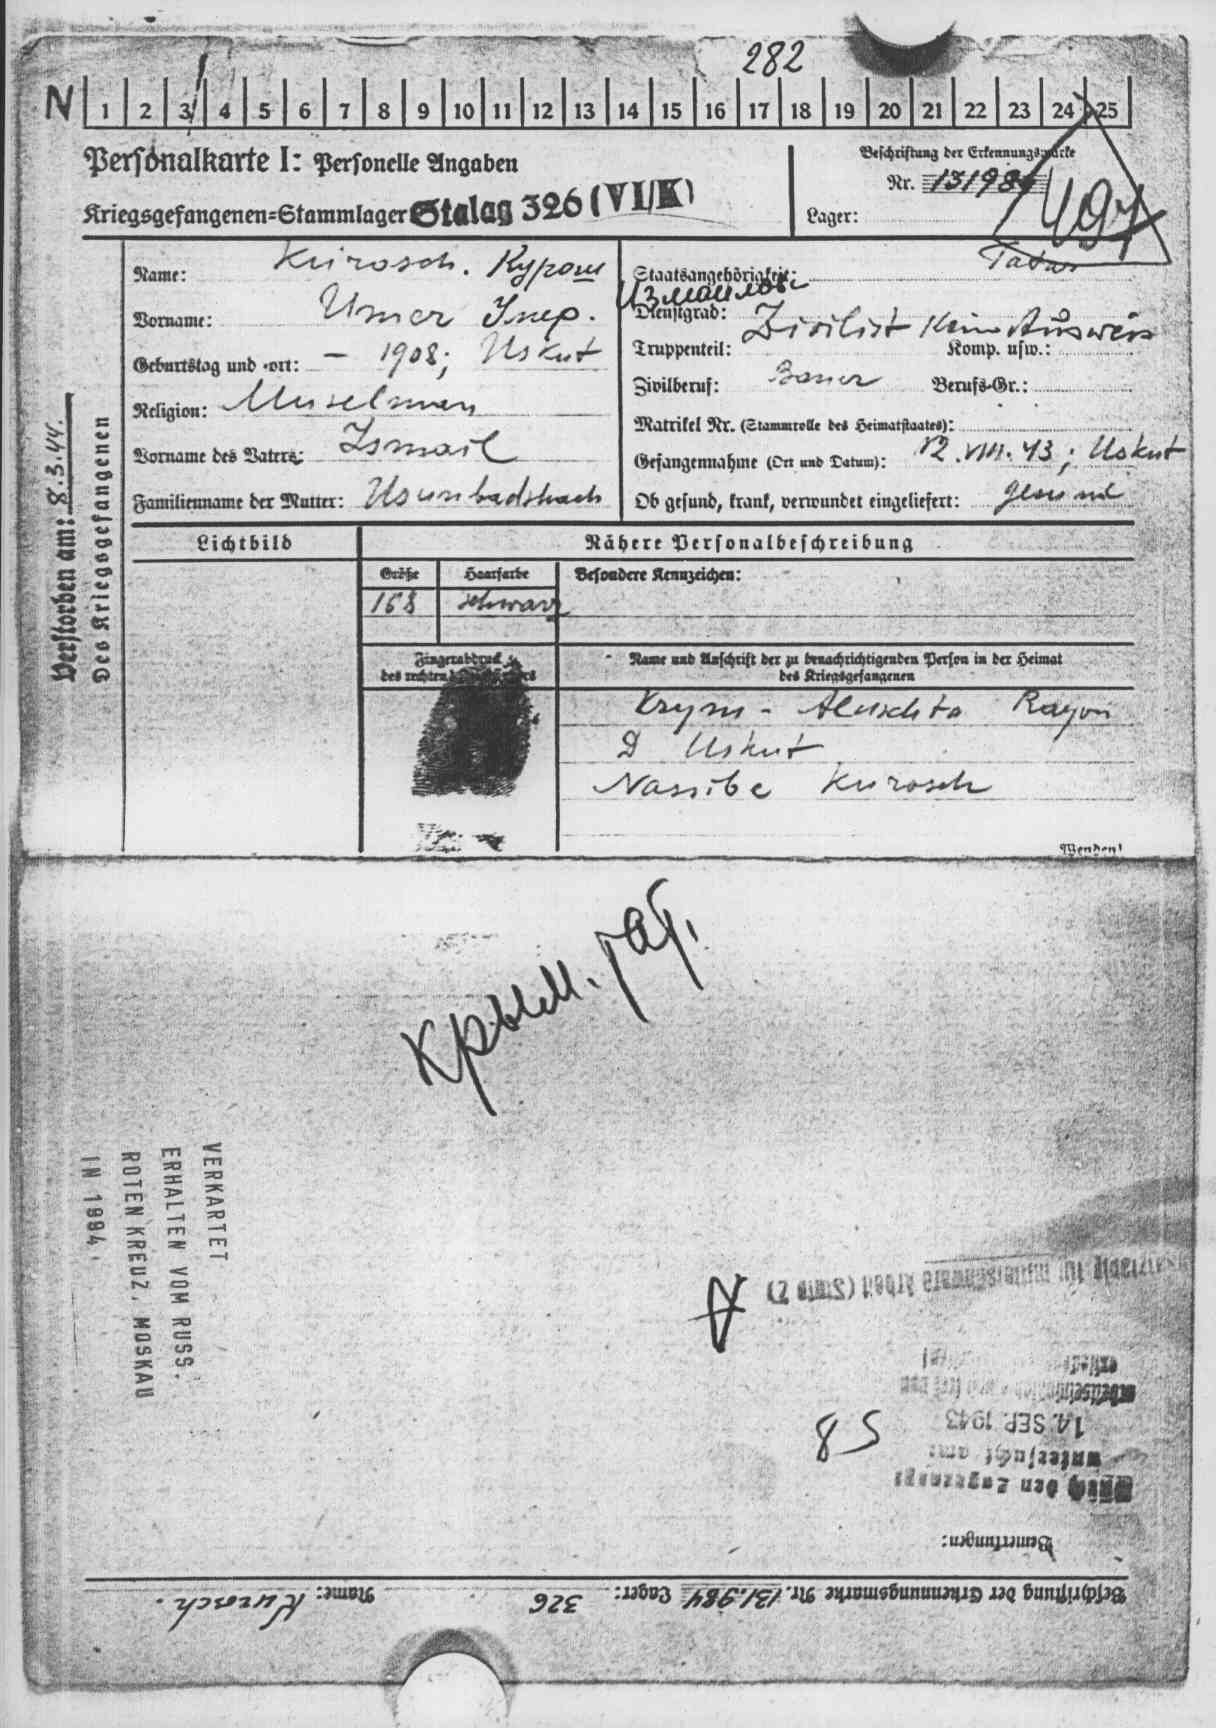 282
N 1 2 3 4 5 6 7 8 9 10 11 12 13 14 15 16 17 18 19 20 21 22 23 24 25
Personalkarte I: Personelle Angaben
Kriegsgefangenen-Stammlager Stalag 326 (VI/K)
Beschriftung der Erkennungsmarke
Nr. 131984
Lager:
497
Name: Kurosch. Курош
Vorname: Umer Умер.
Измаилов
Geburtstag und -ort: – 1908; Uskut
Religion: Muselman
Vorname des Vaters: Ismail
Familienname der Mutter:
Staatsangehörigkeit: Tatar
Dienstgrad: Zivilist Kein Ausweis
Truppenteil: Komp. usw.:
Zivilberuf: Bauer Berufs-Gr.:
Matrikel Nr. (Stammrolle des Heimatstaates):
Gefangennahme (Ort und Datum): 12.VIII.43; Uskut
Ob gesund, krank, verwundet eingeliefert: gesund
Verstorben am: 8.3.44.
Des Kriegsgefangenen
Lichtbild
Nähere Personalbeschreibung
Größe Haarfarbe Besondere Kennzeichen:
168 schwarz
Fingerabdruck
des rechten
Name und Anschrift der zu benachrichtigenden Person in der Heimat
des Kriegsgefangenen
Krym - Aluschta Rayon
D Uskut
Nassibe Kurosch
Wenden!
Крым. тат.
VERKARTET
ERHALTEN VOM RUSS.
ROTEN KREUZ, MOSKAU
IN 1994.
Beschriftung der Erkennungsmarke Nr. 131.984 Lager: 326 Name: Kurosch.
Bemerkungen:
den Zugangs
untersucht am:
14. SEP. 1943
58
für mittelschwere Arbeit (Stufe 2)